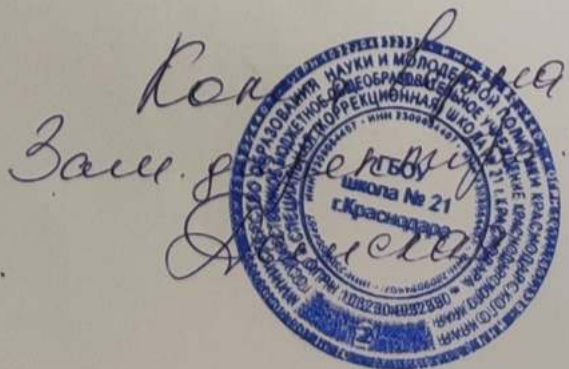 Копия верна
Зам. директора
МИНИСТЕРСТВО ОБРАЗОВАНИЯ НАУКИ И МОЛОДЕЖНОЙ ПОЛИТИКИ КРАСНОДАРСКОГО КРАЯ
ГОСУДАРСТВЕННОЕ БЮДЖЕТНОЕ ОБЩЕОБРАЗОВАТЕЛЬНОЕ УЧРЕЖДЕНИЕ КРАСНОДАРСКОГО КРАЯ
СПЕЦИАЛЬНАЯ (КОРРЕКЦИОННАЯ) ШКОЛА № 21 г.КРАСНОДАРА
ГБОУ
школа № 21
г.Краснодара
2